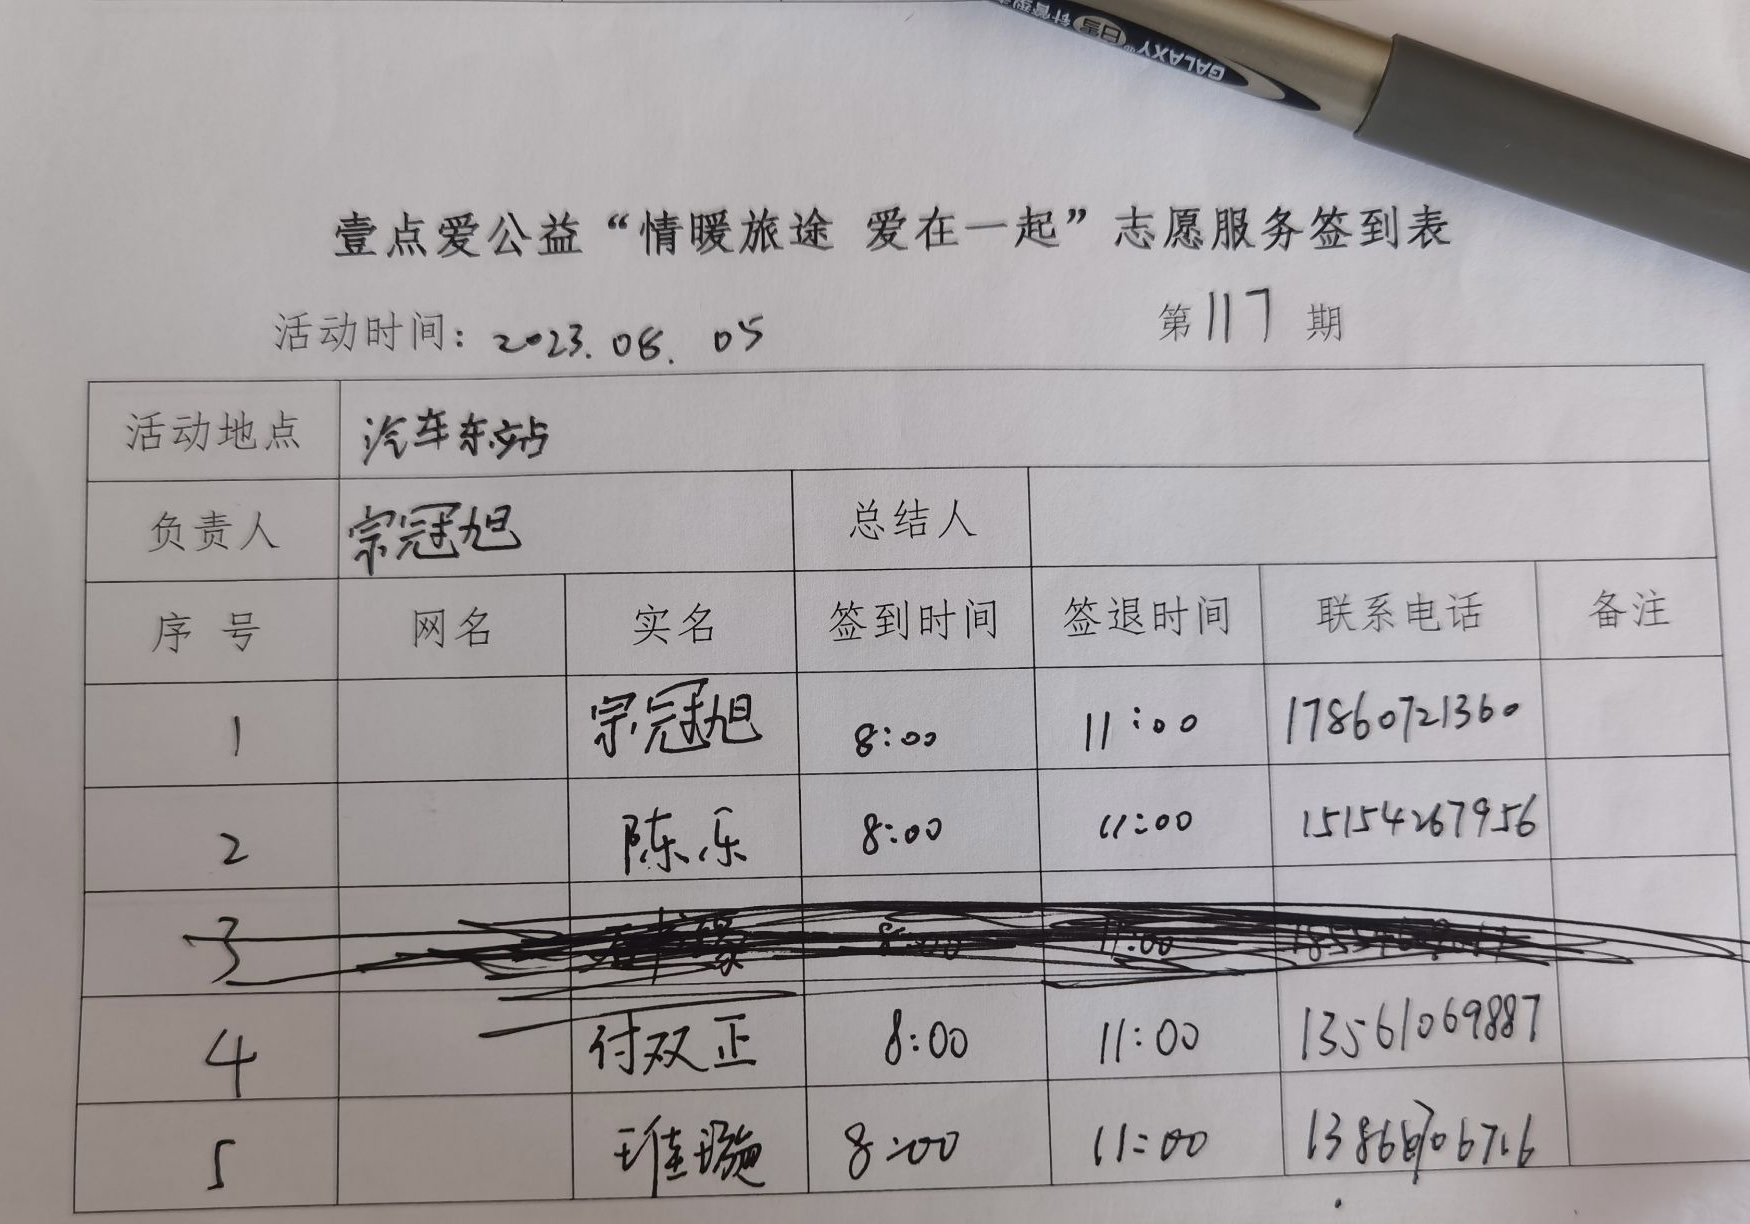 GALAXY 日宫 针管型
壹点爱公益“情暖旅途 爱在一起”志愿服务签到表
活动时间：2023.08.05 第117期
活动地点 汽车东站
负责人 宗冠旭 总结人
序号 网名 实名 签到时间 签退时间 联系电话 备注
1 宗冠旭 8:00 11:00 17860721360
2 陈乐 8:00 11:00 15154267956
3 8:00 11:00
4 付双正 8:00 11:00 13561069887
5 8:00 11:00